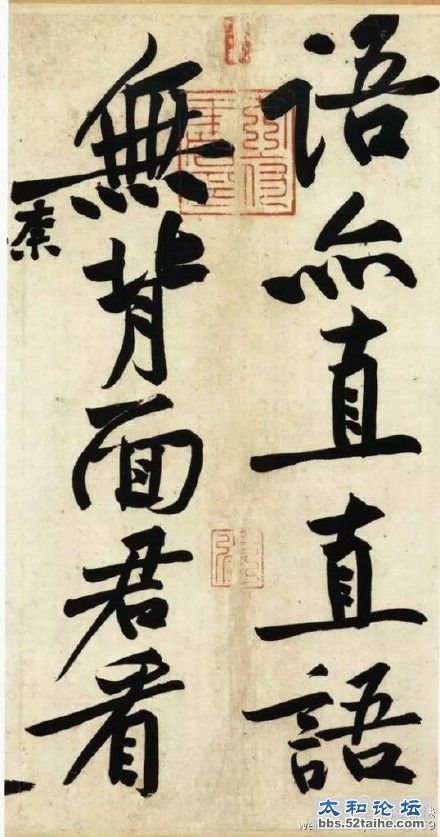 語亦直直語
無背面君看
太和论坛
bbs.52taihe.com